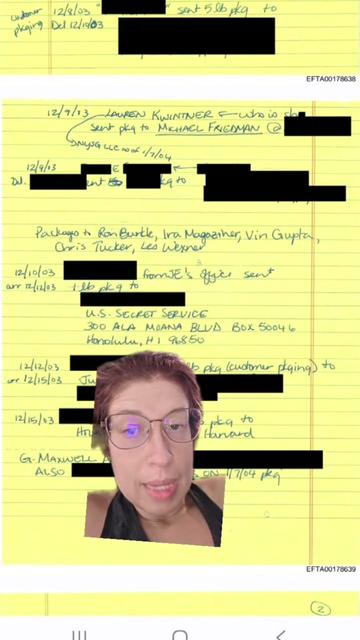 12/8/03 sent 5 lb pkg to
customer
pkging Del 12/19/03
EFTA00178638
12/9/03 LAUREN KWINTNER ← who is she
sent pkg to MICHAEL FRIEDMAN @
→ DNYSG LLC as of 1/7/04
12/9/03 E ←
Del. sent pkg to
Packages to Ron Burkle, Ira Magaziner, Vin Gupta,
Chris Tucker, Les Wexner
12/10/03 from JE's office sent
arr 12/12/03 1 lb pkg to
U.S. SECRET SERVICE
300 ALA MOANA BLVD BOX 50046
Honolulu, HI 96850
12/12/03 lb pkg (customer pkging) to
arr 12/15/03
12/15/03 pkg to
Harvard
G. MAXWELL
ALSO ON 1/7/04 pkg
EFTA00178639
2